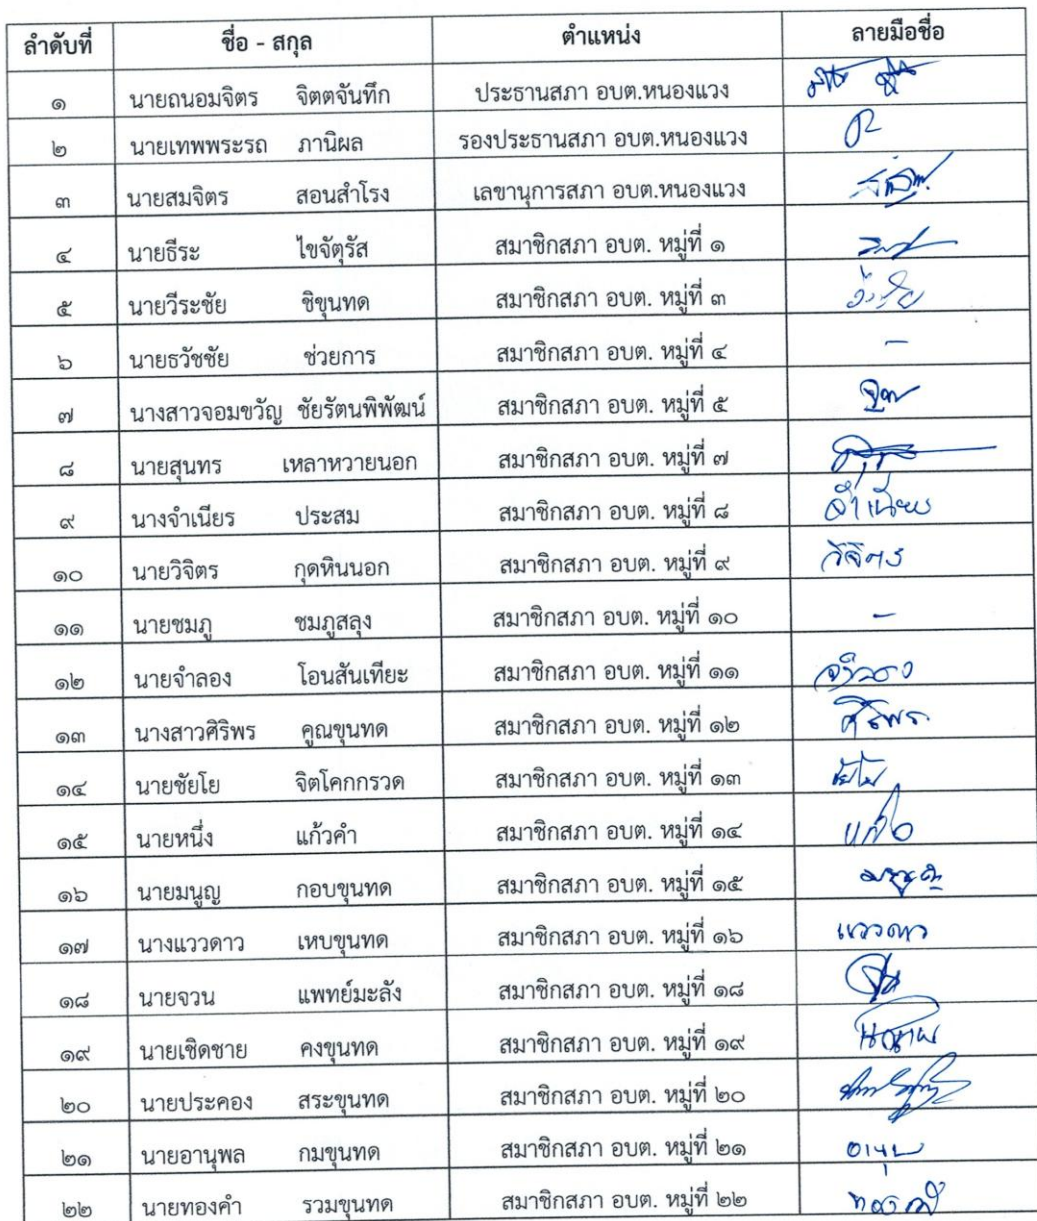 ลำดับที่ ชื่อ - สกุล ตำแหน่ง ลายมือชื่อ
๑ นายถนอมจิตร จิตตจันทึก ประธานสภา อบต.หนองแวง
๒ นายเทพพระรถ ภานิผล รองประธานสภา อบต.หนองแวง
๓ นายสมจิตร สอนสำโรง เลขานุการสภา อบต.หนองแวง
๔ นายธีระ ไขจัตุรัส สมาชิกสภา อบต. หมู่ที่ ๑
๕ นายวีระชัย ชิขุนทด สมาชิกสภา อบต. หมู่ที่ ๓
๖ นายธวัชชัย ช่วยการ สมาชิกสภา อบต. หมู่ที่ ๔ -
๗ นางสาวจอมขวัญ ชัยรัตนพิพัฒน์ สมาชิกสภา อบต. หมู่ที่ ๕
๘ นายสุนทร เหลาหวายนอก สมาชิกสภา อบต. หมู่ที่ ๗
๙ นางจำเนียร ประสม สมาชิกสภา อบต. หมู่ที่ ๘ จำเนียร
๑๐ นายวิจิตร กุดหินนอก สมาชิกสภา อบต. หมู่ที่ ๙ วิจิตร
๑๑ นายชมภู ชมภูสลุง สมาชิกสภา อบต. หมู่ที่ ๑๐ -
๑๒ นายจำลอง โอนสันเทียะ สมาชิกสภา อบต. หมู่ที่ ๑๑ จำลอง
๑๓ นางสาวศิริพร คูณขุนทด สมาชิกสภา อบต. หมู่ที่ ๑๒ ศิริพร
๑๔ นายชัยโย จิตโคกกรวด สมาชิกสภา อบต. หมู่ที่ ๑๓ ชัยโย
๑๕ นายหนึ่ง แก้วคำ สมาชิกสภา อบต. หมู่ที่ ๑๔
๑๖ นายมนูญ กอบขุนทด สมาชิกสภา อบต. หมู่ที่ ๑๕
๑๗ นางแววดาว เหบขุนทด สมาชิกสภา อบต. หมู่ที่ ๑๖ แววดาว
๑๘ นายจวน แพทย์มะลัง สมาชิกสภา อบต. หมู่ที่ ๑๘
๑๙ นายเชิดชาย คงขุนทด สมาชิกสภา อบต. หมู่ที่ ๑๙
๒๐ นายประคอง สระขุนทด สมาชิกสภา อบต. หมู่ที่ ๒๐
๒๑ นายอานุพล กมขุนทด สมาชิกสภา อบต. หมู่ที่ ๒๑
๒๒ นายทองคำ รวมขุนทด สมาชิกสภา อบต. หมู่ที่ ๒๒ ทองคำ